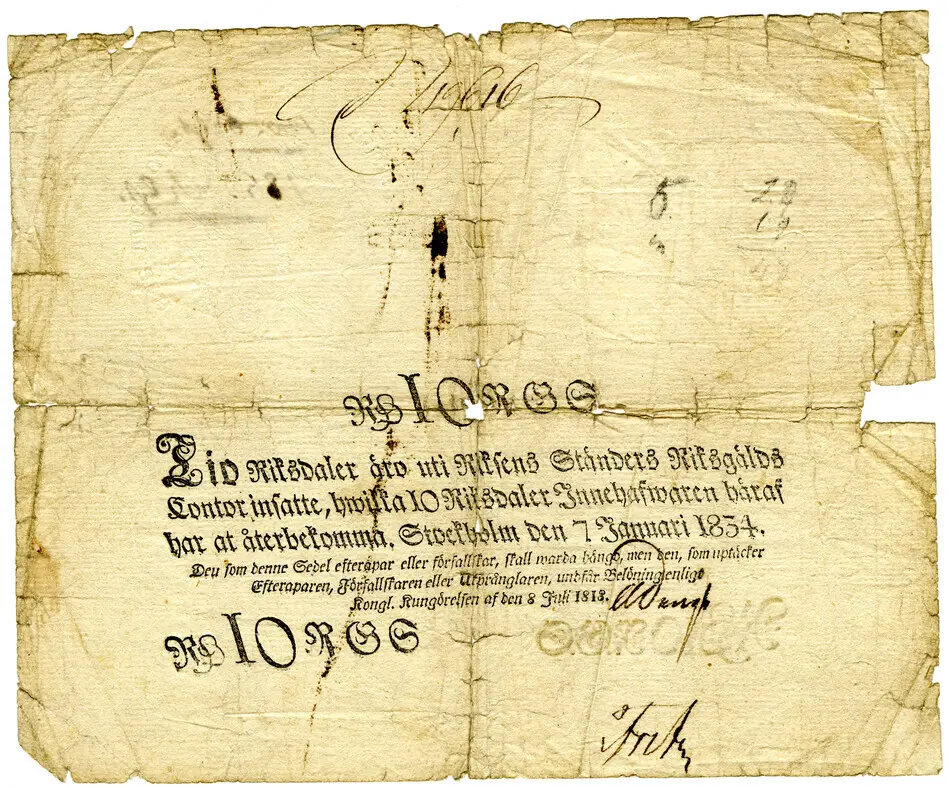 49616
5
28
Rß 10 RGS
Tio Riksdaler äro uti Riksens Ständers Riksgälds
Contor insatte, hwilka 10 Riksdaler Innehafwaren häraf
har at återbekomma. Stockholm den 7 Januari 1834.
Den som denne Sedel efterapar eller förfalskar, skall warda hängd, men den, som uptäcker
Efteraparen, Förfalskaren eller Utpränglaren, undfår Belöning enligt
Kongl. Kungörelsen af den 8 Juli 1818.
Rß 10 RGS